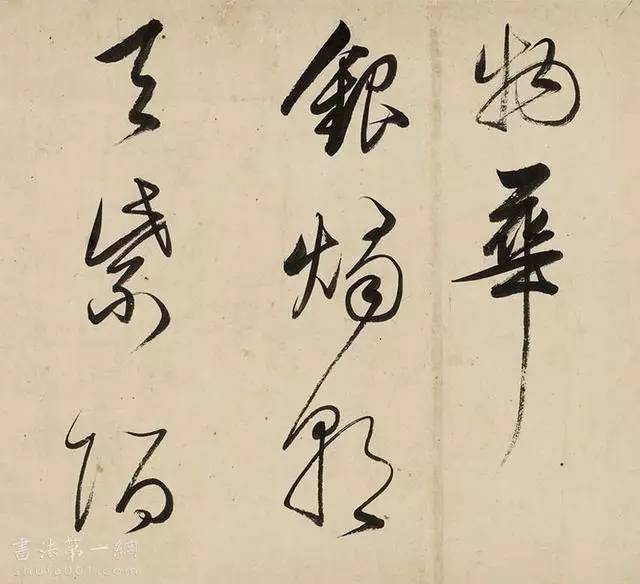 物華
銀燭朝
天紫陌
書法第一網
shufa001.com